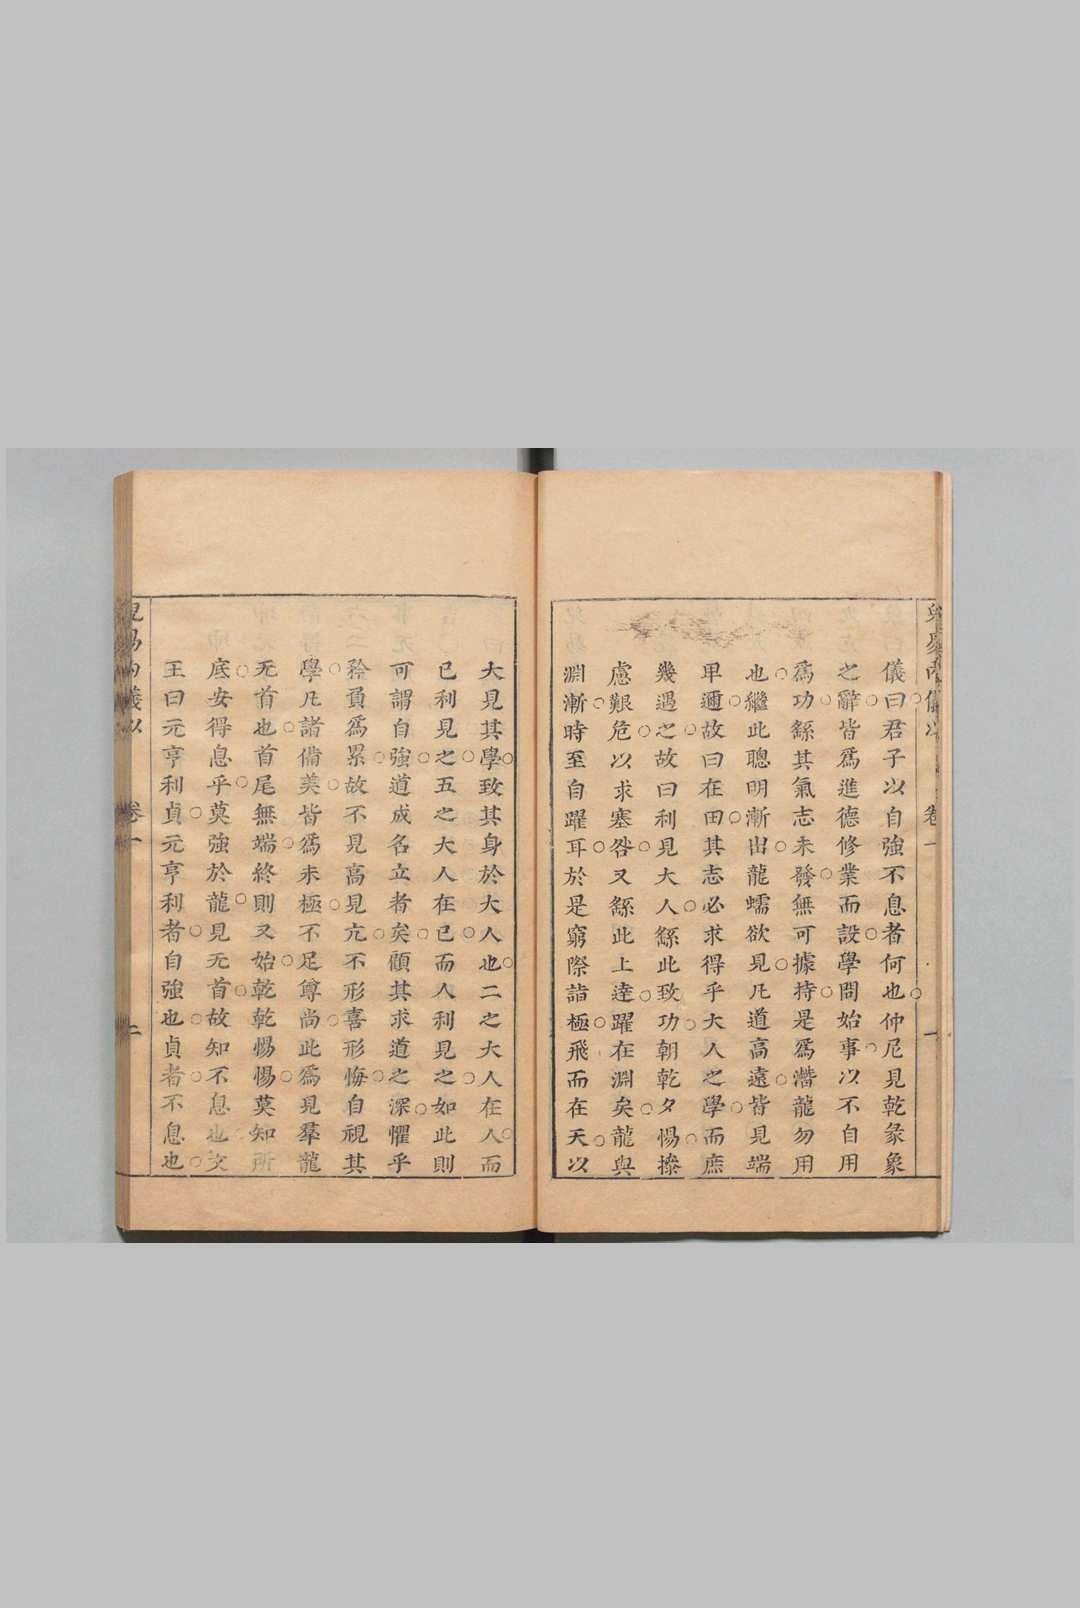 儀曰君子以自強不息者何也仲尼見乾彖象
之辭皆爲進德修業而設學問始事以不自用
爲功繇其氣志未發無可據持是爲潛龍勿用
也繼此聰明漸出龍蠕欲見凡道高遠皆見端
甲邇故曰在田其志必求得乎大人之學而庶
幾遇之故曰利見大人繇此致功朝乾夕惕搽
慮艱危以求塞咎又繇此上達躍在淵矣龍與
淵漸時至自躍耳於是窮際詣極飛而在天以
大見其學致其身於大人也二之大人在人而
已利見之五之大人在已而人利見之如此則
可謂自強道成名立者矣顧其求道之深懼乎
矜負爲累故不見高見亢不形喜形悔自視其
學凡諸備美皆爲未極不足尊尚此爲見羣龍
无首也首尾無端終則又始乾乾惕惕莫知所
底安得息乎莫強於龍見无首故知不息也文
王曰元亨利貞元亨利者自強也貞者不息也
卷一
卷一